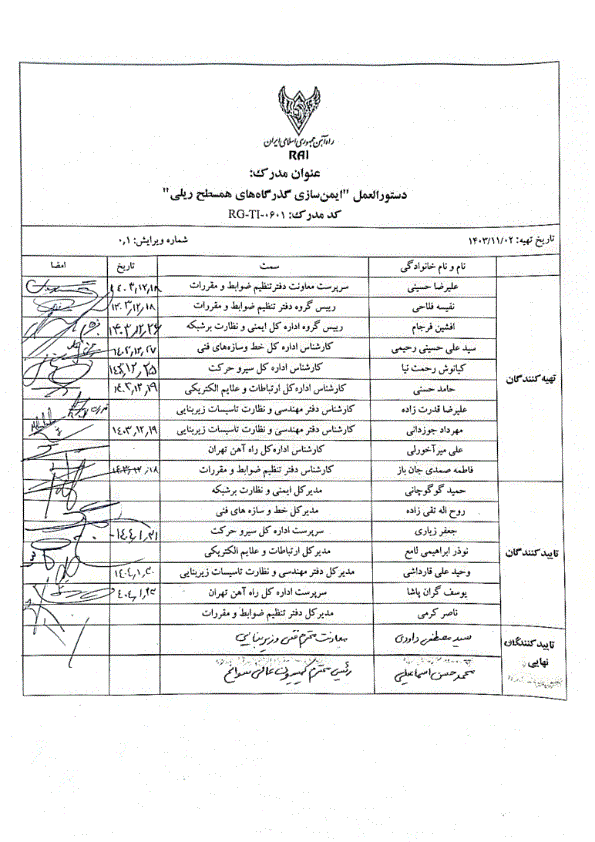 راه‌آهن جمهوری اسلامی ایران
RAI
عنوان مدرک:
دستورالعمل "ایمن‌سازی گذرگاه‌های همسطح ریلی"
کد مدرک: RG-TI-۰۶۰۱
تاریخ تهیه: ۱۴۰۳/۱۱/۰۲ شماره ویرایش: ۰,۱
نام و نام خانوادگی سمت تاریخ امضا
تهیه کنندگان
علیرضا حسینی سرپرست معاونت دفتر تنظیم ضوابط و مقررات
نفیسه فلاحی رییس گروه دفتر تنظیم ضوابط و مقررات ۱۴۰۳,۱۲,۱۸
افشین فرجام رییس گروه اداره کل ایمنی و نظارت برشبکه ۱۴۰۳,۱۲,۲۶
سید علی حسینی رحیمی کارشناس اداره کل خط وسازه‌های فنی ۱۴۰۳,۱۲,۲۷
کیانوش رحمت نیا کارشناس اداره کل سیرو حرکت ۱۴۰۳,۱۲,۲۵
حامد حسنی کارشناس اداره کل ارتباطات و علایم الکتریکی ۱۴۰۳,۱۲,۱۹
علیرضا قدرت زاده کارشناس دفتر مهندسی و نظارت تاسیسات زیربنایی
مهرداد جوزدانی کارشناس دفتر مهندسی و نظارت تاسیسات زیربنایی ۱۴۰۳,۱۲,۱۹
علی میرآخورلی کارشناس اداره کل راه آهن تهران
فاطمه صمدی جان باز کارشناس دفتر تنظیم ضوابط و مقررات
تاییدکنندگان
حمید گوگوچانی مدیرکل ایمنی و نظارت برشبکه
روح اله تقی زاده مدیرکل خط و سازه های فنی
جعفر زیاری سرپرست اداره کل سیرو حرکت ۱۴۰۴,۱,۲۱
نوذر ابراهیمی ثامع مدیرکل ارتباطات و علایم الکتریکی
وحید علی قارداشی مدیرکل دفتر مهندسی و نظارت تاسیسات زیربنایی
یوسف گران پاشا سرپرست اداره کل راه آهن تهران
ناصر کرمی مدیرکل دفتر تنظیم ضوابط و مقررات
تایید کنندگان نهایی
سید مصطفی داودی معاونت محترم فنی و زیربنایی
محمدحسن اسماعیلی رئیس محترم کمیسیون عالی سوانح